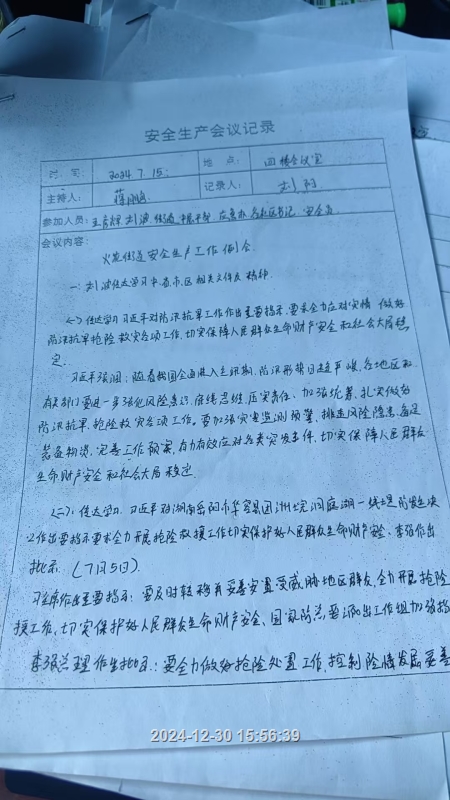 安全生产会议记录
时 间： 2024.7.15. 地 点： 四楼会议室
主持人： 蒋鹏 记录人： 刘
参加人员： 刘波 应急办 各社区书记 安全员
会议内容：
火花街道安全生产工作例会
一、刘波传达学习中省市区相关文件及精神.
(一)传达学习习近平对防汛抗旱工作作出重要指示.要求全力应对灾情 做好
防汛抗旱抢险救灾各项工作,切实保障人民群众生命财产安全和社会大局稳
定.
习近平强调:随着我国全面进入主汛期,防汛形势日趋严峻,各地区和
有关部门要进一步强化风险意识、底线思维,压实责任、加强统筹,扎实做好
防汛抗旱、抢险救灾各项工作。要加强灾害监测预警、排查风险隐患 备足
装备物资,完善工作预案,有力有效应对各类突发事件,切实保障人民群众
生命财产安全和社会大局稳定.
(二)、传达学习 习近平对湖南岳阳市华容县团洲垸洞庭湖一线堤防发生决
口作出重要指示要求全力开展抢险救援工作切实保护好人民群众生命财产安全、李强作出
批示. (7月5日).
习主席作出重要指示:要及时转移并妥善安置受威胁地区群众,全力开展抢险
援工作,切实保护好人民群众生命财产安全、国家防总要派出工作组加强指
李强总理作出批示:要全力做好抢险处置工作,控制险情发展 妥善
2024-12-30 15:56:39